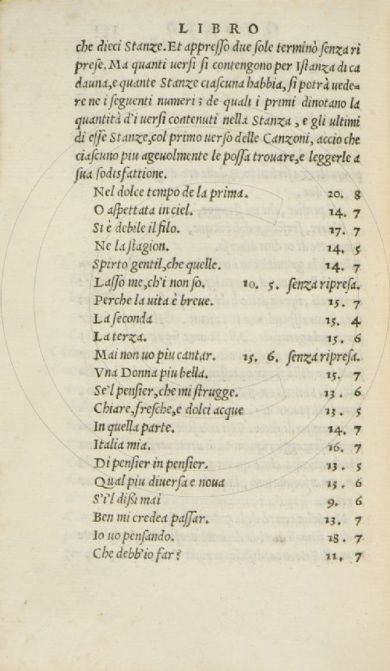 LIBRO
che dieci Stanze. Et appresso due sole terminò senza ri
prese. Ma quanti versi si contengono per Istanza di ca
dauna, e quante Stanze ciascuna habbia, si potrà vede-
re ne i seguenti numeri; de quali i primi dinotano la
quantità d'i versi contenuti nella Stanza, e gli ultimi
di esse Stanze, col primo verso delle Canzoni, accio che
ciascuno piu agevolmente le possa trovare, e leggerle a
sua sodisfattione.
Nel dolce tempo de la prima. 20. 8
O aspettata in ciel. 14. 7
Si è debile il filo. 17. 7
Ne la stagion. 14. 5
Spirto gentil, che quelle. 14. 7
Lasso me, ch'i non so. 10. 5. senza ripresa.
Perche la vita è breve. 15. 7
La seconda 15. 4
La terza. 15. 6
Mai non vo piu cantar. 15. 6. senza ripresa.
Vna Donna piu bella. 15. 7
Se'l pensier, che mi strugge. 13. 6
Chiare, fresche, e dolci acque 13. 5
In quella parte. 14. 7
Italia mia. 16. 7
Di pensier in pensier. 13. 5
Qual piu diversa e nova 15. 6
S'i'l dissi mai 9. 6
Ben mi credea passar. 13. 7
Io vo pensando. 18. 7
Che debb'io far? 11. 7